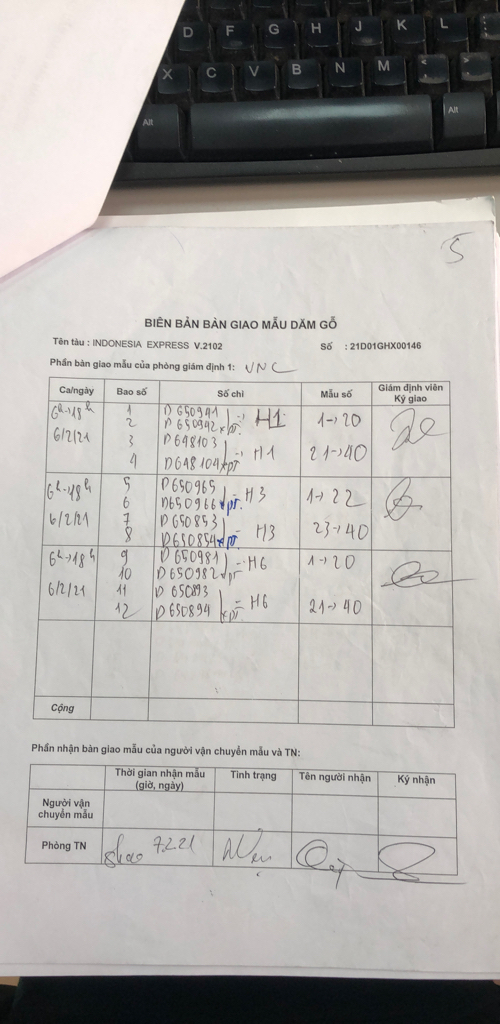 D F G H J K L
X C V B N M
Alt Alt
5
BIÊN BẢN BÀN GIAO MẪU DĂM GỖ
Tên tàu : INDONESIA EXPRESS V.2102 Số : 21D01GHX00146
Phần bàn giao mẫu của phòng giám định 1: VNC
Ca/ngày Bao số Số chì Mẫu số Giám định viên
Ký giao
6h→18h 1 D 650941 H1 1→20
2 D 650942
6/2/21 3 D 648103 H1 21→40
4 D 648104
6h→18h 5 D 650965 H3 1→22
6 D 650966
6/2/21 7 D 650853 H3 23→40
8 D 650854
6h→18h 9 D 650981 H6 1→20
10 D 650982
6/2/21 11 D 650893 H6 21→40
12 D 650894
Cộng
Phần nhận bàn giao mẫu của người vận chuyển mẫu và TN:
Thời gian nhận mẫu Tình trạng Tên người nhận Ký nhận
(giờ, ngày)
Người vận
chuyển mẫu
Phòng TN 7.2.21